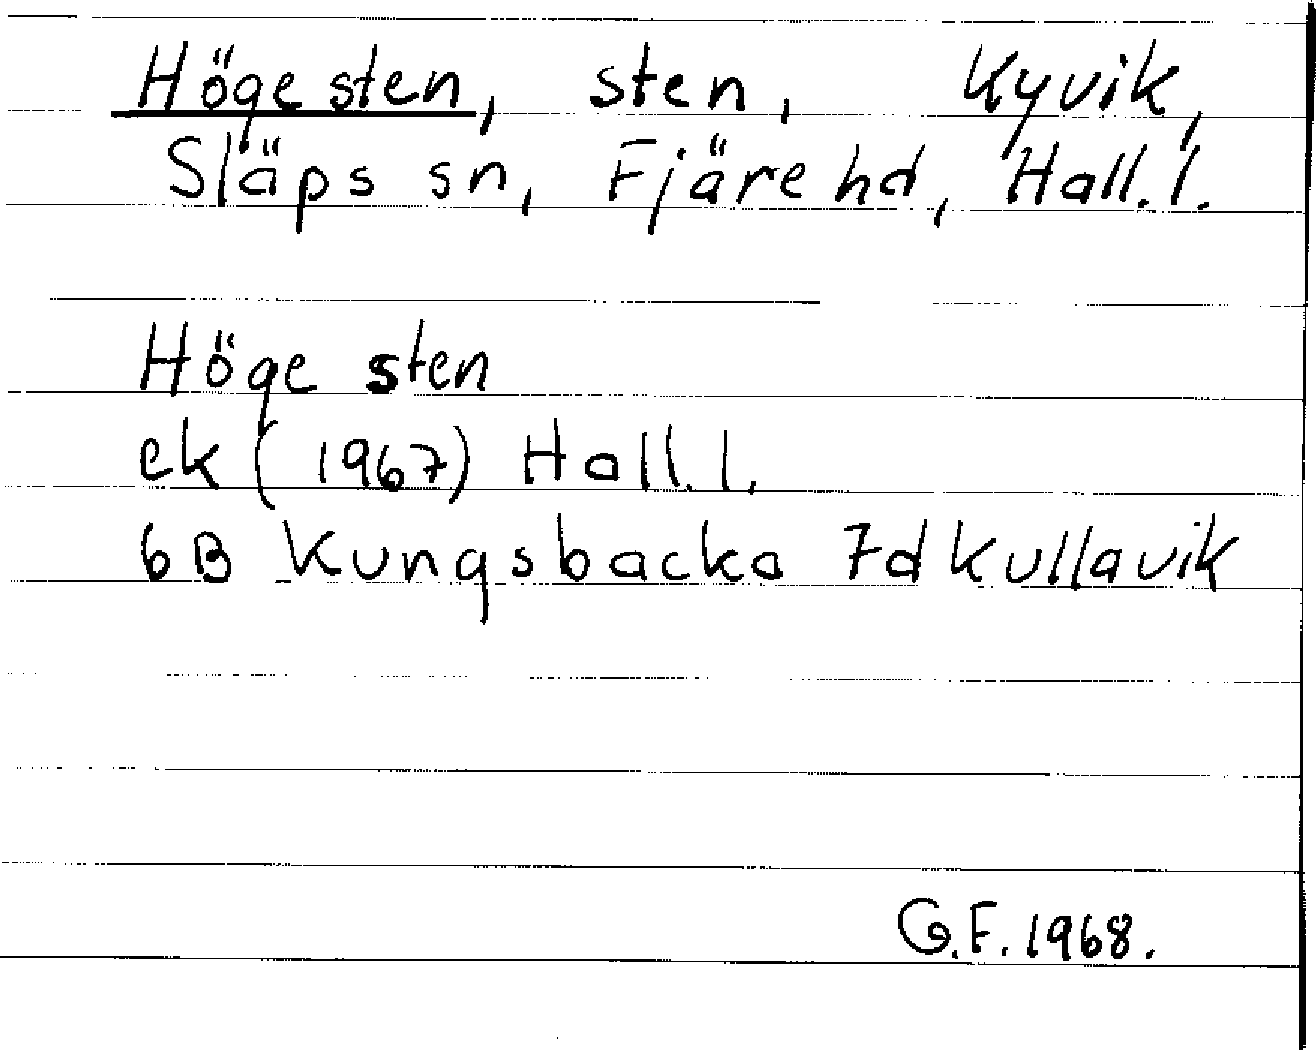 Höge sten, sten, Kyvik,
Släps sn, Fjäre hd, Hall. l.
Höge sten
ek (1967) Hall. l.
6B Kungsbacka 7d Kullavik
G.F. 1968.